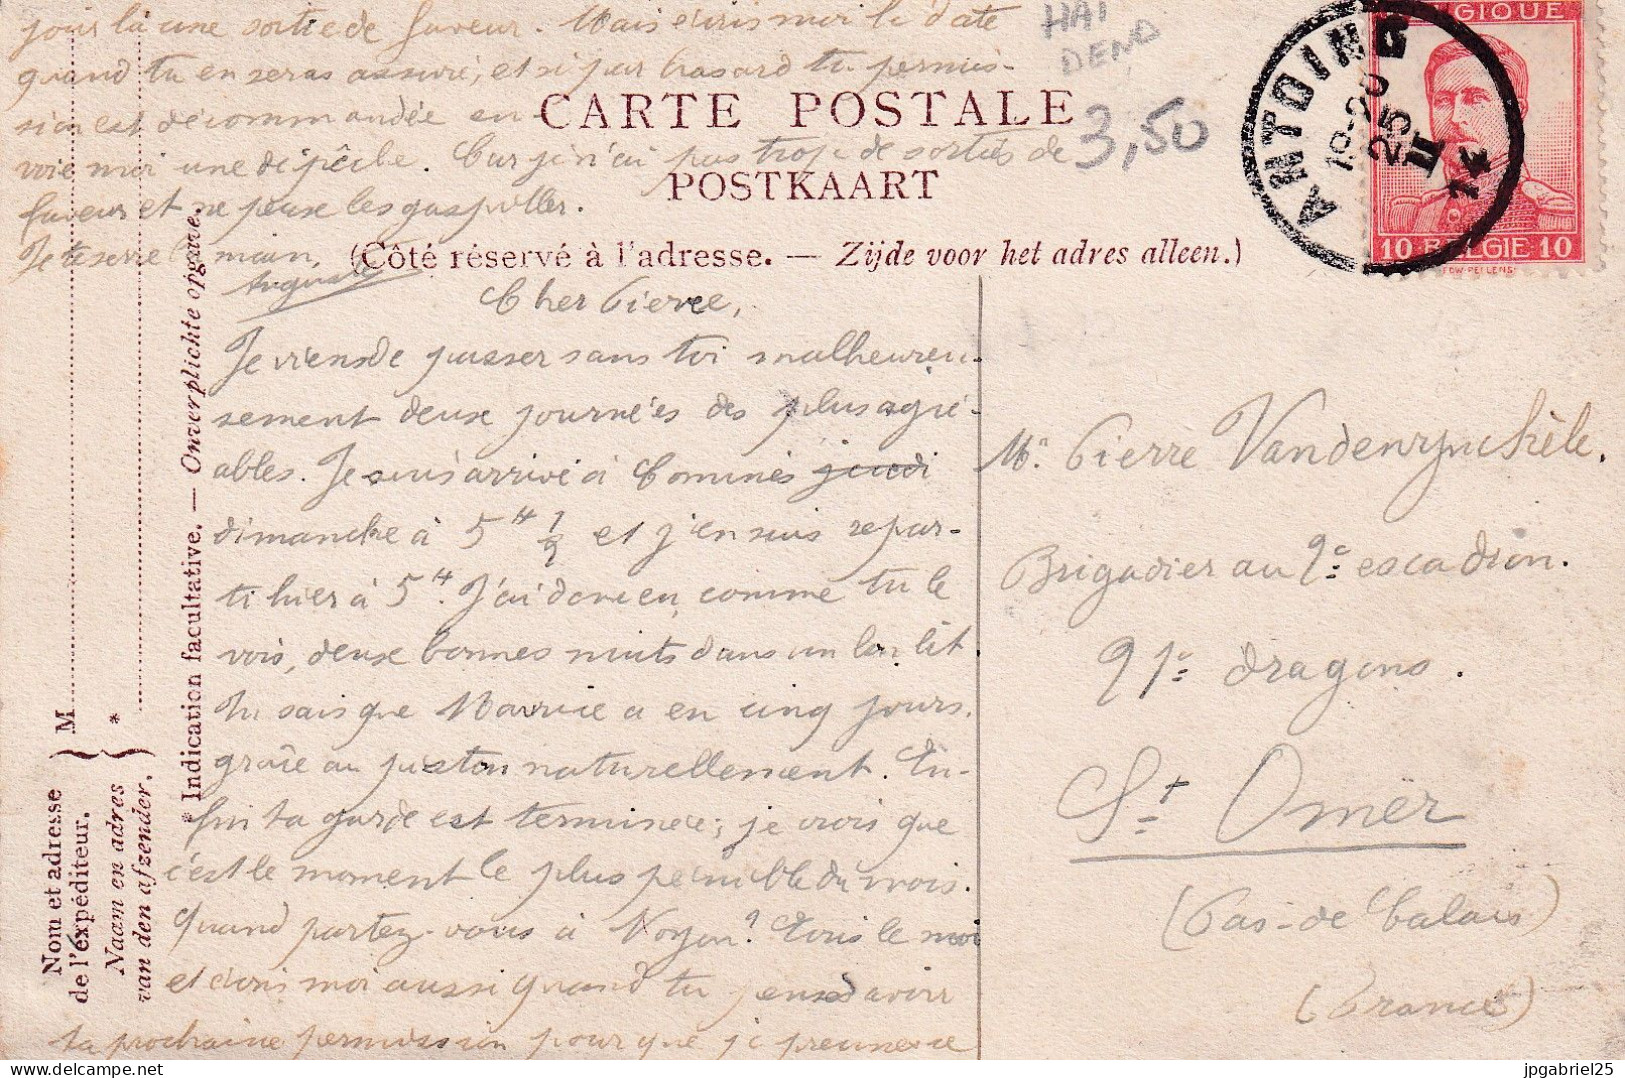 jour là une sortie de faveur. Mais écris moi la date
quand tu en seras assuré, et si par hasard ta permis-
sion est décommandée en-
voie moi une dépêche. Car je n'ai pas trop de sorties de
faveur et ne peux les gaspiller.
Je te serre la main,
Auguste
HAI
DEND
3,50
CARTE POSTALE
POSTKAART
(Côté réservé à l'adresse. — Zijde voor het adres alleen.)
BELGIQUE
10 BELGIE 10
ANTOING
19-20
25
II
14
Cher Pierre,
Je viens de passer sans toi malheureu-
sement deux journées des plus agré-
ables. Je suis arrivé à Comines jeudi
dimanche à 5 H 1/2 et j'en suis repar-
ti hier à 5 H. J'ai donc eu, comme tu le
vois, deux bonnes nuits dans un bon lit.
Tu sais que Maurice a eu cinq jours,
grâce au piston naturellement. En-
fin ta garde est terminée; je crois que
c'est le moment le plus pénible du mois.
Quand partez-vous à Noyon? Écris le moi
et écris moi aussi quand tu penses avoir
ta prochaine permission pour que je prenne ce
Mr. Pierre Vandenrynckhèle.
Brigadier au 2e escadron.
21e dragons.
St Omer
(Pas-de Calais)
(France)
Nom et adresse
de l'expéditeur.
Naam en adres
van den afzender.
M
*
* Indication facultative. — Onverplichte opgave.
jpgabriel25